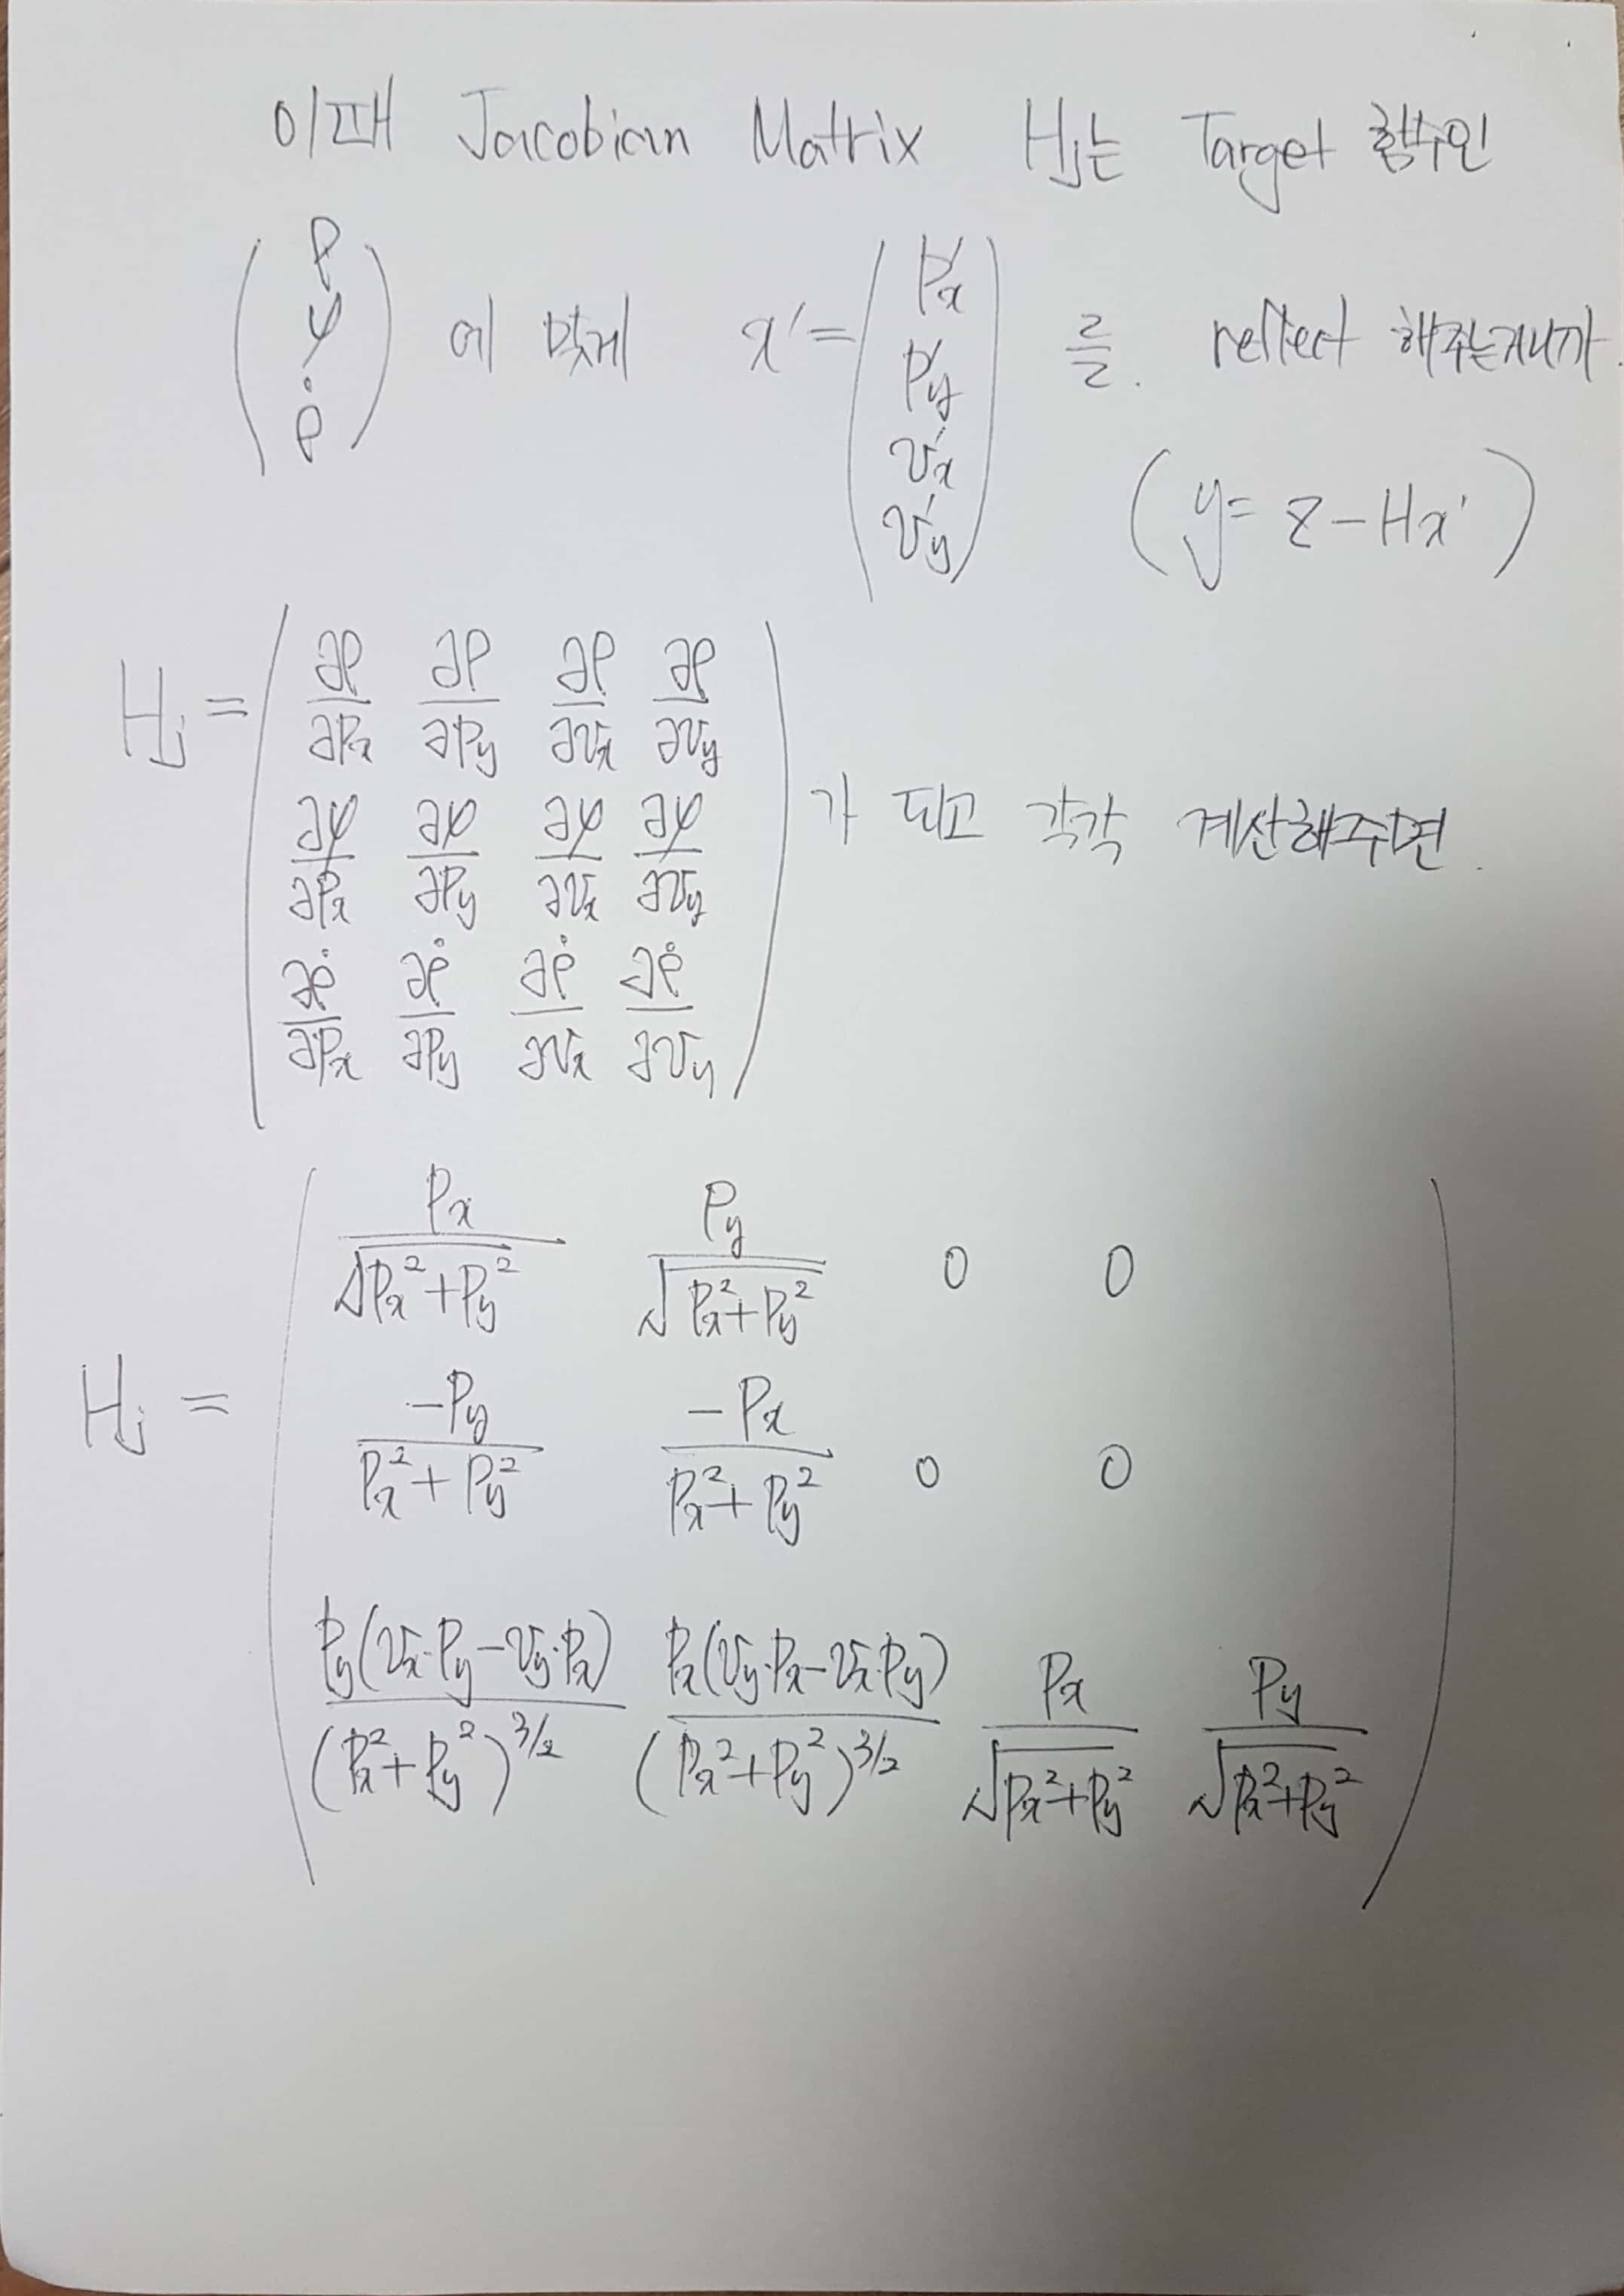 이때 Jacobian Matrix Hj는 Target 함수인
(ρ φ ρ̇) 에 맞게 x' = (p'x p'y v'x v'y) 를. reflect 해주는거니까.
(y = z - Hx')
Hj = (∂ρ/∂Px ∂ρ/∂Py ∂ρ/∂vx ∂ρ/∂vy
∂φ/∂Px ∂φ/∂Py ∂φ/∂vx ∂φ/∂vy
∂ρ̇/∂Px ∂ρ̇/∂Py ∂ρ̇/∂vx ∂ρ̇/∂vy) 가 되고 각각 계산해주면.
Hj = (Px/√(Px²+Py²) Py/√(Px²+Py²) 0 0
-Py/(Px²+Py²) -Px/(Px²+Py²) 0 0
Py(vx·Py-vy·Px)/(Px²+Py²)^3/2 Px(vy·Px-vx·Py)/(Px²+Py²)^3/2 Px/√(Px²+Py²) Py/√(Px²+Py²))